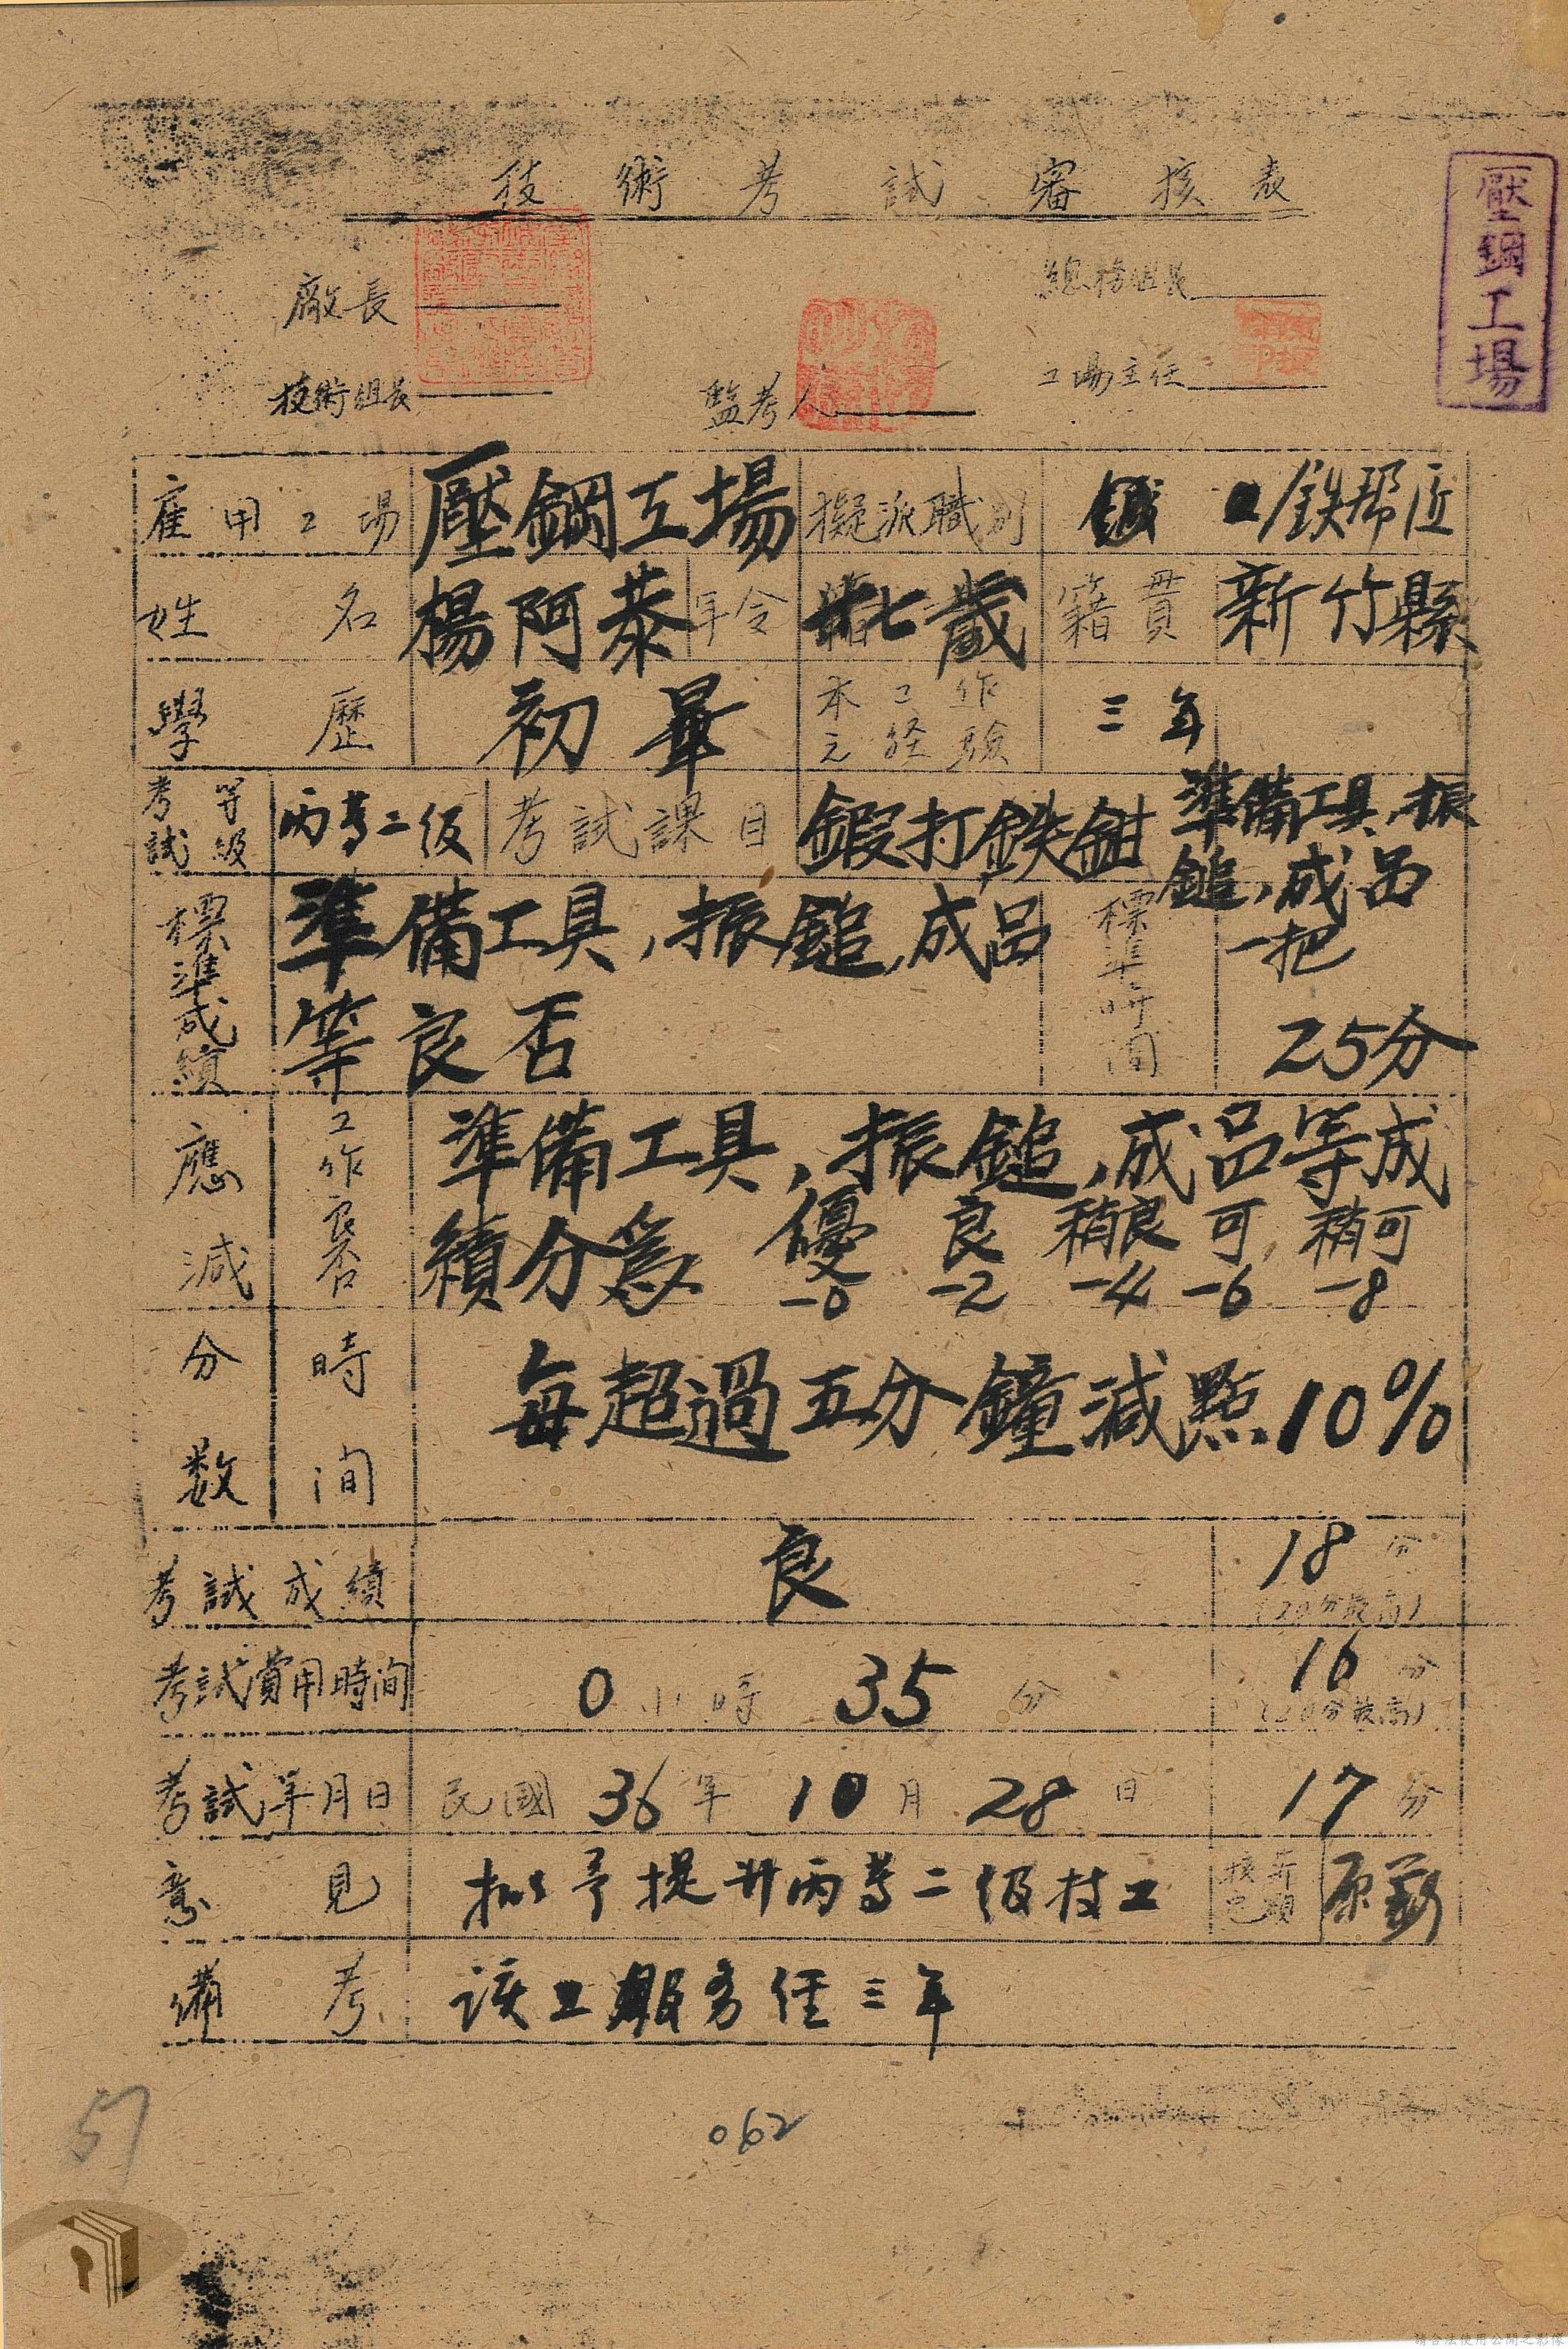 技術考試審核表
壓鋼工場
廠長
總務組長
技術組長
監考人
工場主任
雇用工場 壓鋼工場 擬派職別 鉄帮匠
姓名 楊阿恭 年令 七歲 籍貫 新竹縣
學歷 初畢 本工作元経驗 三年
考試等級 丙等二级 考試課目 鍛打鉄鉗
標準成績 準備工具,振鎚,成品
等良否
標準時间 準備工具,振
鎚,成品
一把
25分
應減分数 工作良否 準備工具,振鎚,成品等成
績分為 優 良 稍良 可 稍可
-0 -2 -4 -6 -8
時间 每超過五分鐘減點10%
考試成績 良 18分
(20分最高)
考試費用時间 0小時35分 16分
(20分最高)
考試年月日 民國36年10月28日 17分
意見 拟予提升丙等二级技工 核定薪額 原薪
備考 该工服务任三年
57
062
請合法使用公開之影像